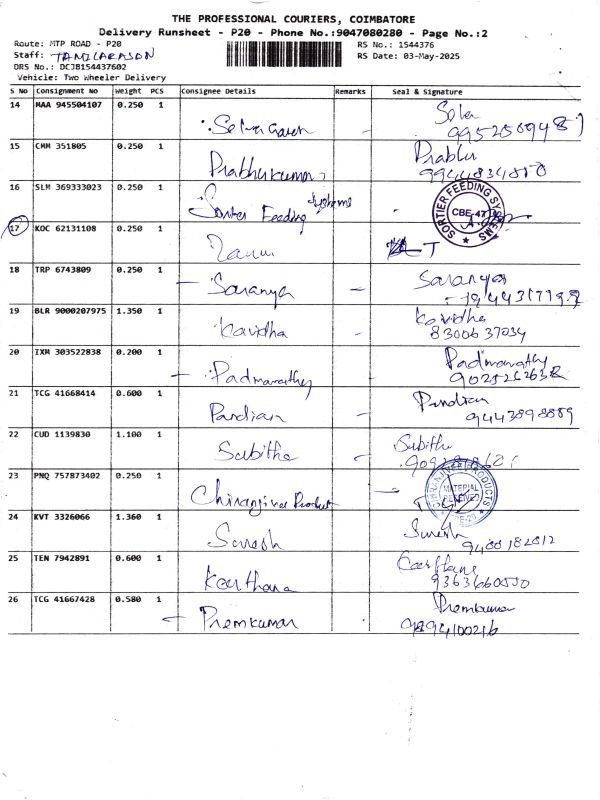 THE PROFESSIONAL COURIERS, COIMBATORE
Delivery Runsheet - P20 - Phone No.:9047080280 - Page No.:2
Route: MTP ROAD - P20 RS No.: 1544376
Staff: TAMILARASON RS Date: 03-May-2025
DRS No.: DCJB154437602
Vehicle: Two Wheeler Delivery
S No Consignment No Weight PCS Consignee Details Remarks Seal & Signature
14 MAA 945504107 0.250 1
15 CMM 351805 0.250 1 Prabhukumar Prabhu
16 SLM 369333023 0.250 1 Sorter Feeding Systems SORTIER FEEDING SYSTEMS CBE-47
17 KOC 62131108 0.250 1
18 TRP 6743809 0.250 1 Saranya - Saranya
19 BLR 9000207975 1.350 1 Kavidha - Kavidha
8300637034
20 IXM 303522838 0.200 1 Padmavathy Padmavathy
21 TCG 41668414 0.600 1 Pandian - Pandian
22 CUD 1139830 1.100 1 Sabitha - Sabitha
23 PNQ 757873402 0.250 1 Chiranjivee Product - MATERIAL RECEIVED
24 KVT 3326066 1.360 1 Suresh Suresh
9488182812
25 TEN 7942891 0.600 1 Keerthana
9363660550
26 TCG 41667428 0.580 1 - Premkumar Premkumar
9894100216